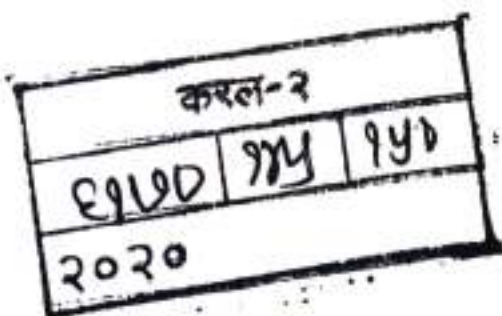 करल-२
६१७० १४५ १५०
२०२०